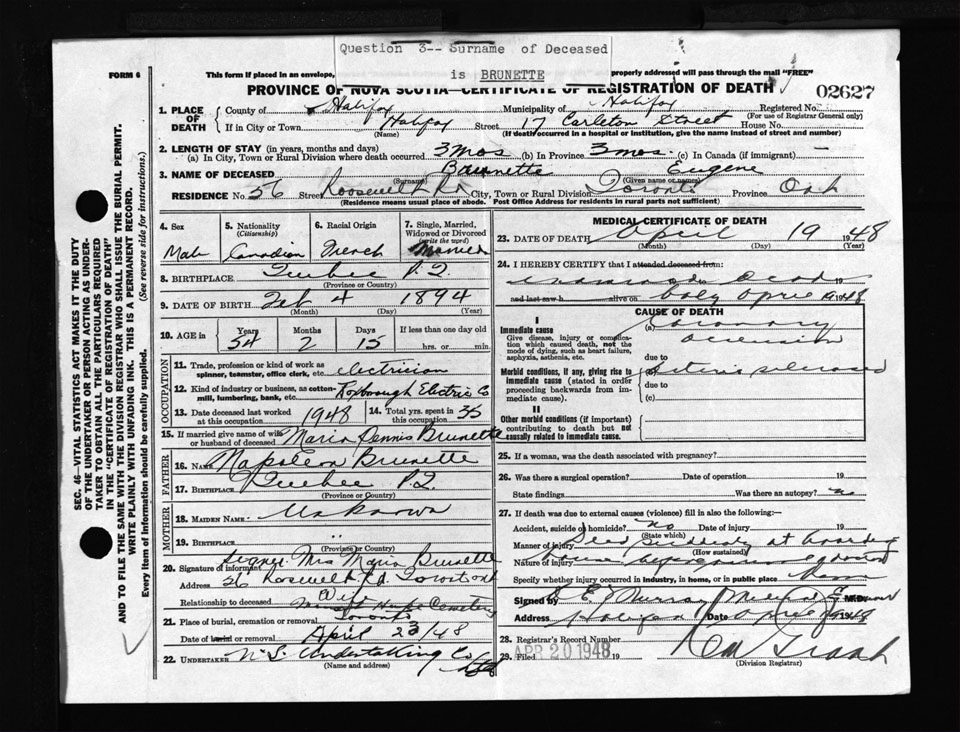 Question 3-- Surname of Deceased
is BRUNETTE
FORM 6
This form if placed in an envelope, properly addressed will pass through the mail "FREE"
PROVINCE OF NOVA SCOTIA—CERTIFICATE OF REGISTRATION OF DEATH
02627
1. PLACE OF DEATH County of Halifax Municipality of Halifax Registered No.
(For use of Registrar General only)
If in City or Town Halifax Street 17 Carleton Street House No.
(Name) (If death occurred in a hospital or institution, give name instead of street and number)
2. LENGTH OF STAY (in years, months and days)
(a) In City, Town or Rural Division where death occurred 3 mos (b) In Province 3 mos. (c) In Canada (if immigrant) —
3. NAME OF DECEASED Brunette Eugene
(Surname) (Given name or names)
RESIDENCE No. 56 Street Roosevelt Rd City, Town or Rural Division Toronto Province Ont
(Residence means usual place of abode. Post Office Address for residents in rural parts not sufficient)
4. Sex Male
5. Nationality (Citizenship) Canadian
6. Racial Origin French
7. Single, Married, Widowed or Divorced (write the word) Married
8. BIRTHPLACE Quebec P.Q.
(Province or Country)
9. DATE OF BIRTH Feb 4 1894
(Month) (Day) (Year)
10. AGE in Years Months Days If less than one day old
54 2 15 hrs. or min.
OCCUPATION
11. Trade, profession or kind of work as
spinner, teamster, office clerk, etc. electrician
12. Kind of industry or business, as cotton-
mill, lumbering, bank, etc. Electric Co
13. Date deceased last worked at this occupation 1948
14. Total yrs. spent in this occupation 35
15. If married give name of wife or husband of deceased Maria Dennis Brunette
FATHER
16. NAME Napoleon Brunette
17. BIRTHPLACE Quebec P.Q.
(Province or Country)
MOTHER
18. MAIDEN NAME Unknown
19. BIRTHPLACE " "
(Province or Country)
20. Signature of informant Signed Mrs Maria Brunette
Address 56 Roosevelt Rd. Toronto Ont
Relationship to deceased Wife
21. Place of burial, cremation or removal Mount Hope Cemetery
Toronto
Date of burial or removal April 23/48
22. UNDERTAKER N.S. Undertaking Co Ltd
(Name and address)
MEDICAL CERTIFICATE OF DEATH
23. DATE OF DEATH April 19 1948
(Month) (Day) (Year)
24. I HEREBY CERTIFY that I attended deceased from:
and last saw h alive on body 1948
CAUSE OF DEATH
I
Immediate cause (a) Coronary
Give disease, injury or complication which caused death, not the mode of dying, such as heart failure, asphyxia, asthenia, etc. occlusion
due to
Morbid conditions, if any, giving rise to immediate cause (stated in order proceeding backwards from immediate cause). (b)
due to
(c)
II
Other morbid conditions (if important) contributing to death but not causally related to immediate cause.
25. If a woman, was the death associated with pregnancy?
26. Was there a surgical operation? Date of operation 19
State findings Was there an autopsy? no
27. If death was due to external causes (violence) fill in also the following:—
Accident, suicide or homicide? no Date of injury 19
(State which)
Manner of injury Died suddenly at boarding
(How sustained)
Nature of injury house
Specify whether injury occurred in industry, in home, or in public place
Signed by E Murray
Address Halifax Date 1948
28. Registrar's Record Number
29. Filed APR 20 1948 19
(Division Registrar)
SEC. 46—VITAL STATISTICS ACT MAKES IT THE DUTY
OF THE UNDERTAKER OR PERSON ACTING AS UNDER-
TAKER TO OBTAIN ALL THE PARTICULARS REQUIRED
IN THE "CERTIFICATE OF REGISTRATION OF DEATH"
AND TO FILE THE SAME WITH THE DIVISION REGISTRAR WHO SHALL ISSUE THE BURIAL PERMIT.
WRITE PLAINLY WITH UNFADING INK. THIS IS A PERMANENT RECORD.
Every item of Information should be carefully supplied. (See reverse side for instructions.)